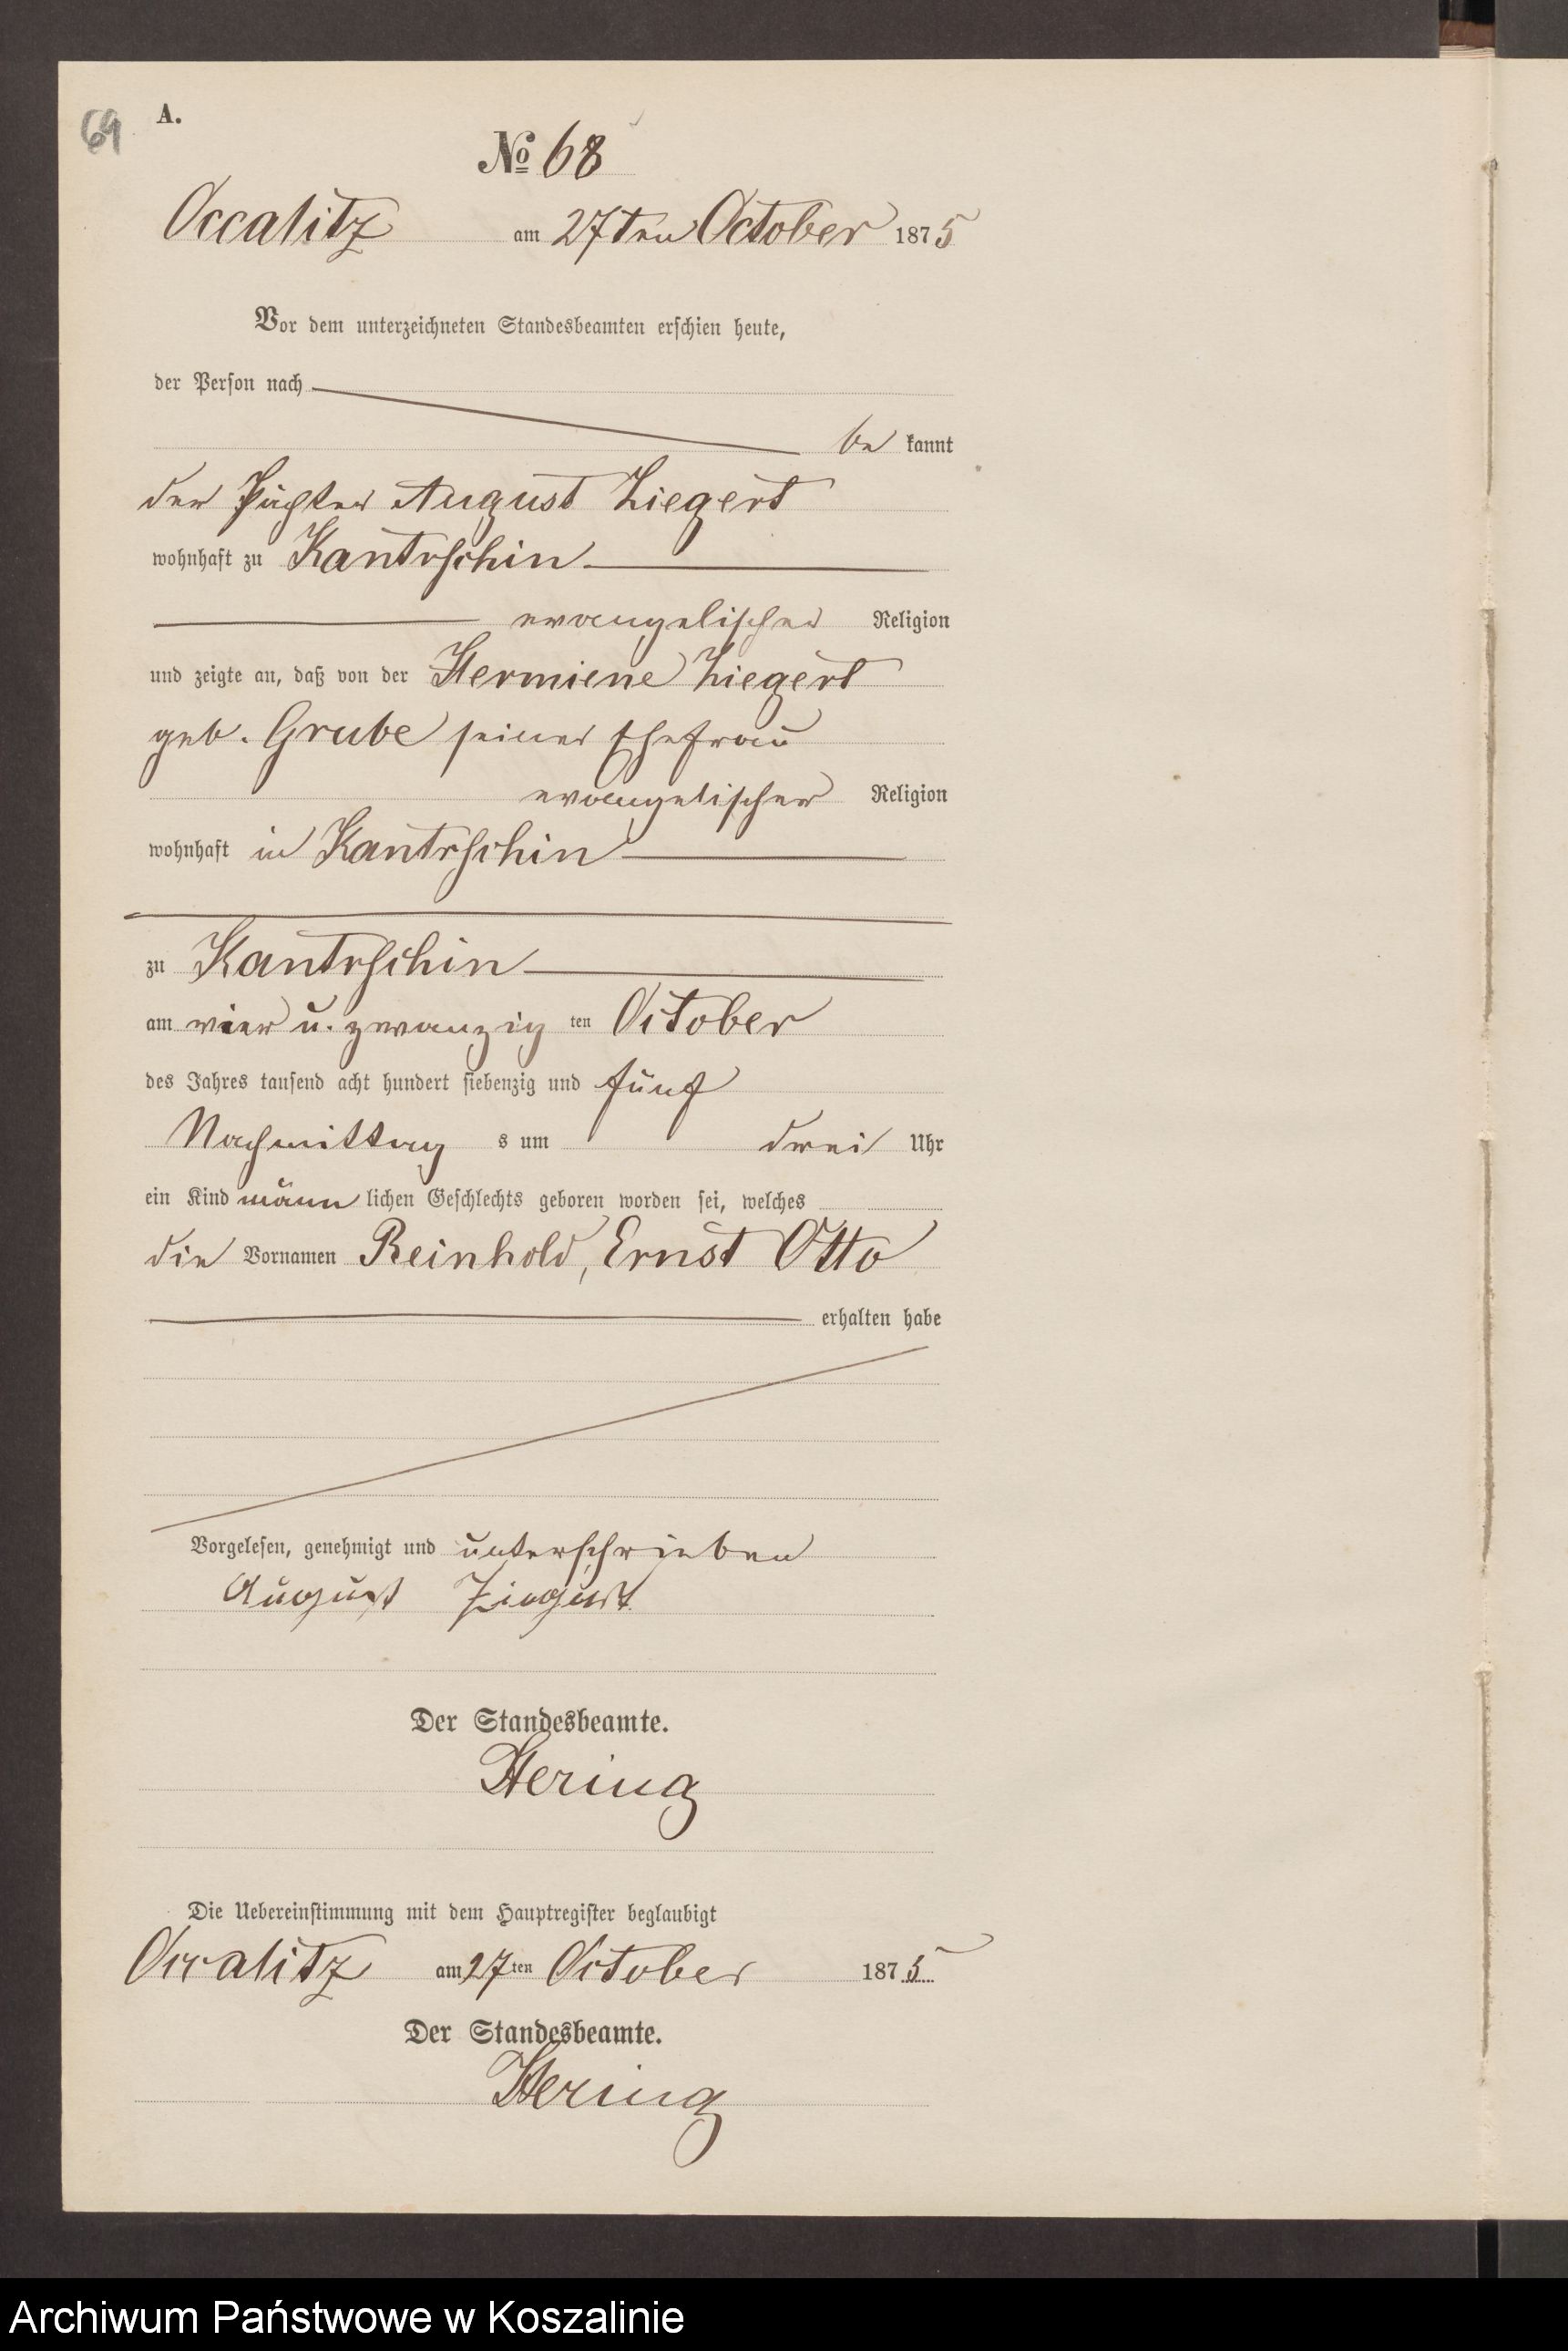 69
A.
№ 68
Occalitz am 27ten October 1875
Vor dem unterzeichneten Standesbeamten erschien heute,
der Person nach
be kannt
der Pächter August Ziegert
wohnhaft zu Kantrschin
evangelischer Religion
und zeigte an, daß von der Hermiene Ziegert
geb. Grube seiner Ehefrau
evangelischer Religion
wohnhaft in Kantrschin
zu Kantrschin
am vier u. zwanzig ten October
des Jahres tausend acht hundert siebenzig und fünf
Nachmittag s um drei Uhr
ein Kind männ lichen Geschlechts geboren worden sei, welches
die Vornamen Reinhold, Ernst Otto
erhalten habe
Vorgelesen, genehmigt und unterschrieben
August Ziegert
Der Standesbeamte.
Hering
Die Uebereinstimmung mit dem Hauptregister beglaubigt
Occalitz am 27ten October 1875
Der Standesbeamte.
Hering
Archiwum Państwowe w Koszalinie